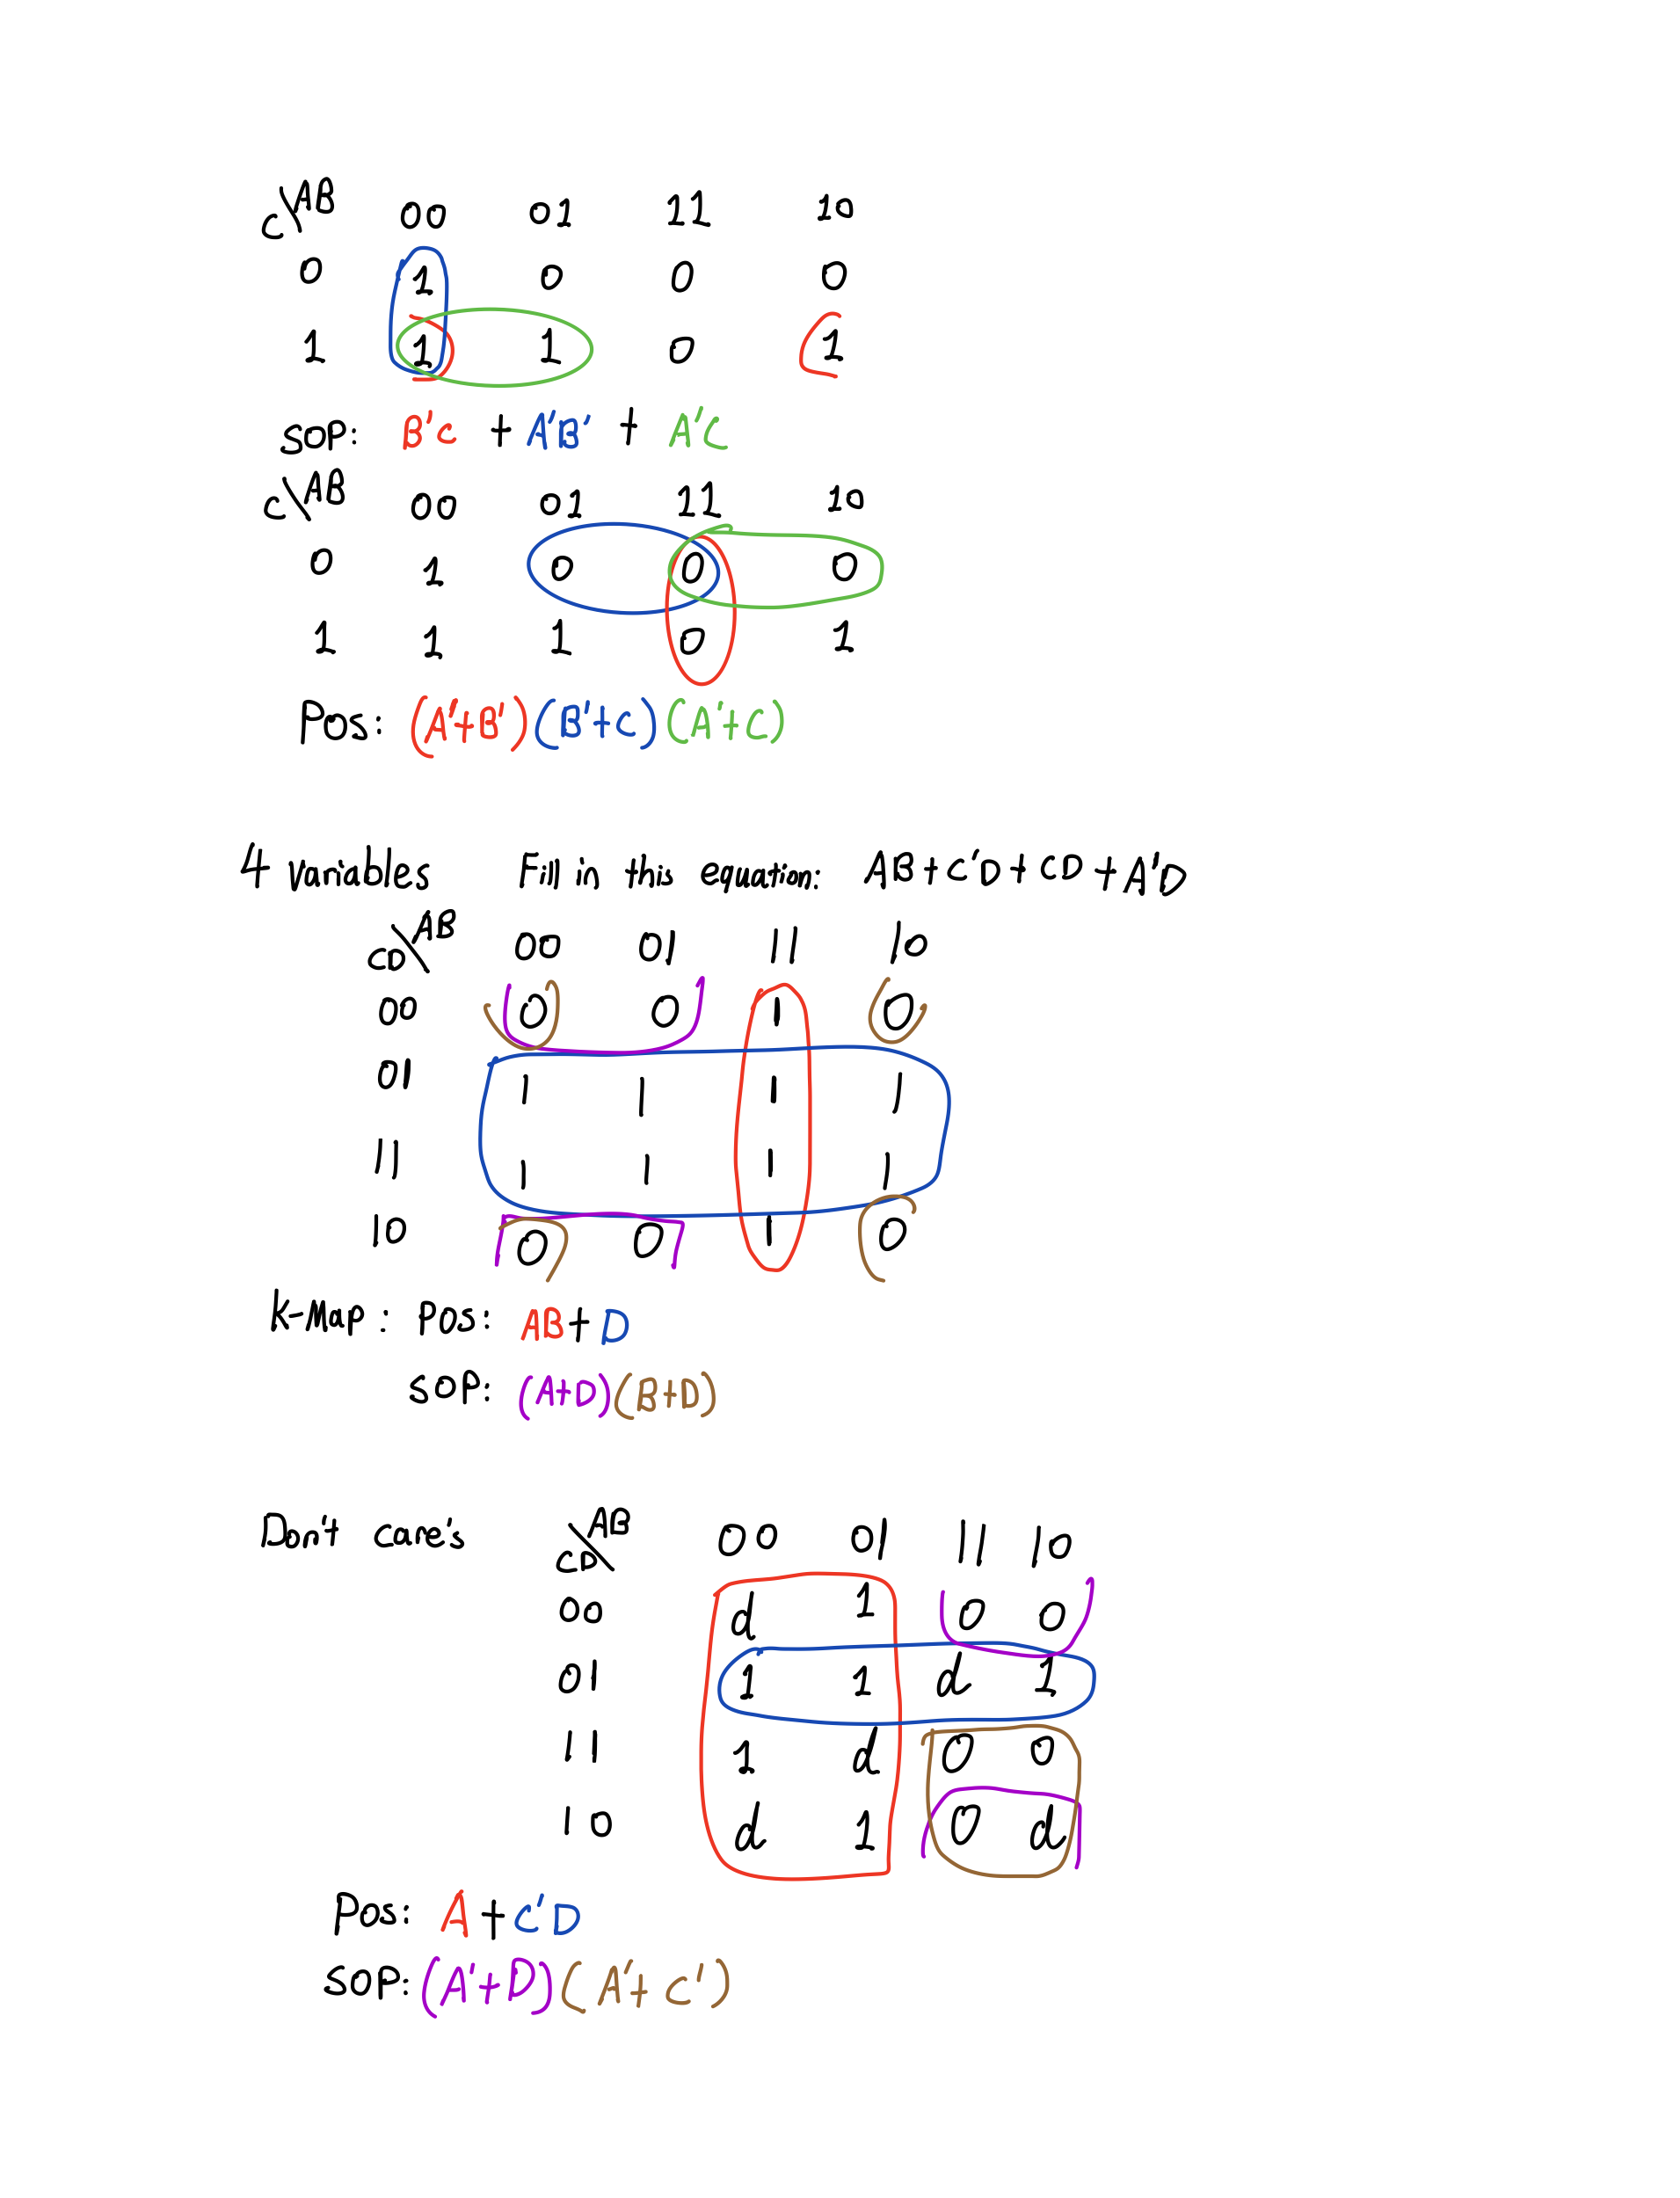 C\AB 00 01 11 10
0 1 0 0 0
1 1 1 0 1
SOP: B'C + A'B' + A'C
C\AB 00 01 11 10
0 1 0 0 0
1 1 1 0 1
Pos: (A'+B')(B'+C)(A'+C)
4 Variables Fill in this equation: AB+C'D+CD+A'D
CD\AB 00 01 11 10
00 0 0 1 0
01 1 1 1 1
11 1 1 1 1
10 0 0 1 0
K-Map: POS: AB+D
SOP: (A+D)(B+D)
Don't care's CD\AB 00 01 11 10
00 d 1 0 0
01 1 1 d 1
11 1 d 0 0
10 d 1 0 d
Pos: A+C'D
SOP: (A'+D)(A'+C')